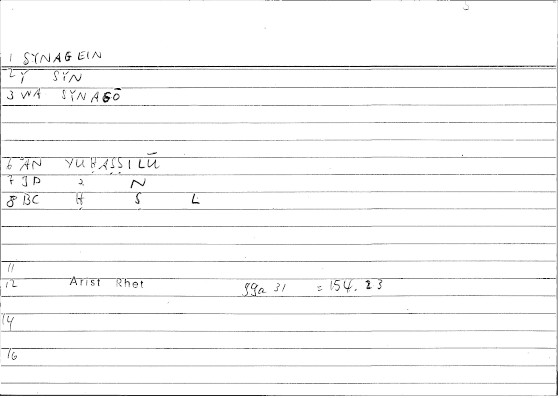 1 SYNAGEIN
2 Y SYN
3 WA SYNAGŌ
6 AN YUḤAṢṢILŪ
7 JP 2 N
8 BC Ḥ Ṣ L
11
12 Arist Rhet 99a 31 = 154.23
14
16